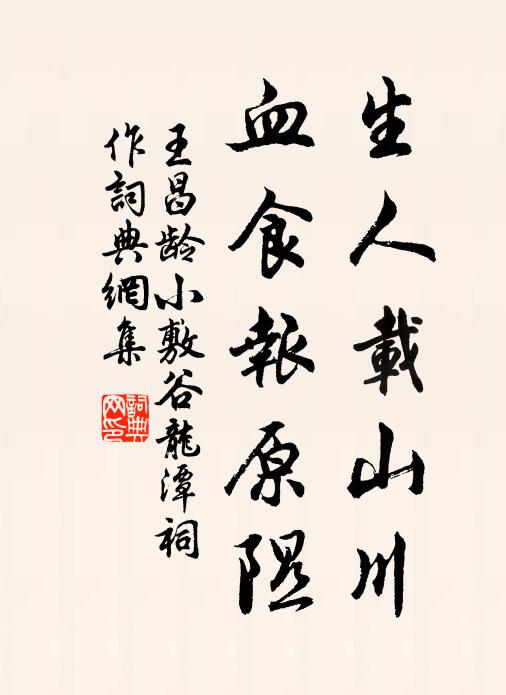 生人載山川
血食報原隰
王昌龄小敷谷龍潭祠
作詞典網集
詞典网印